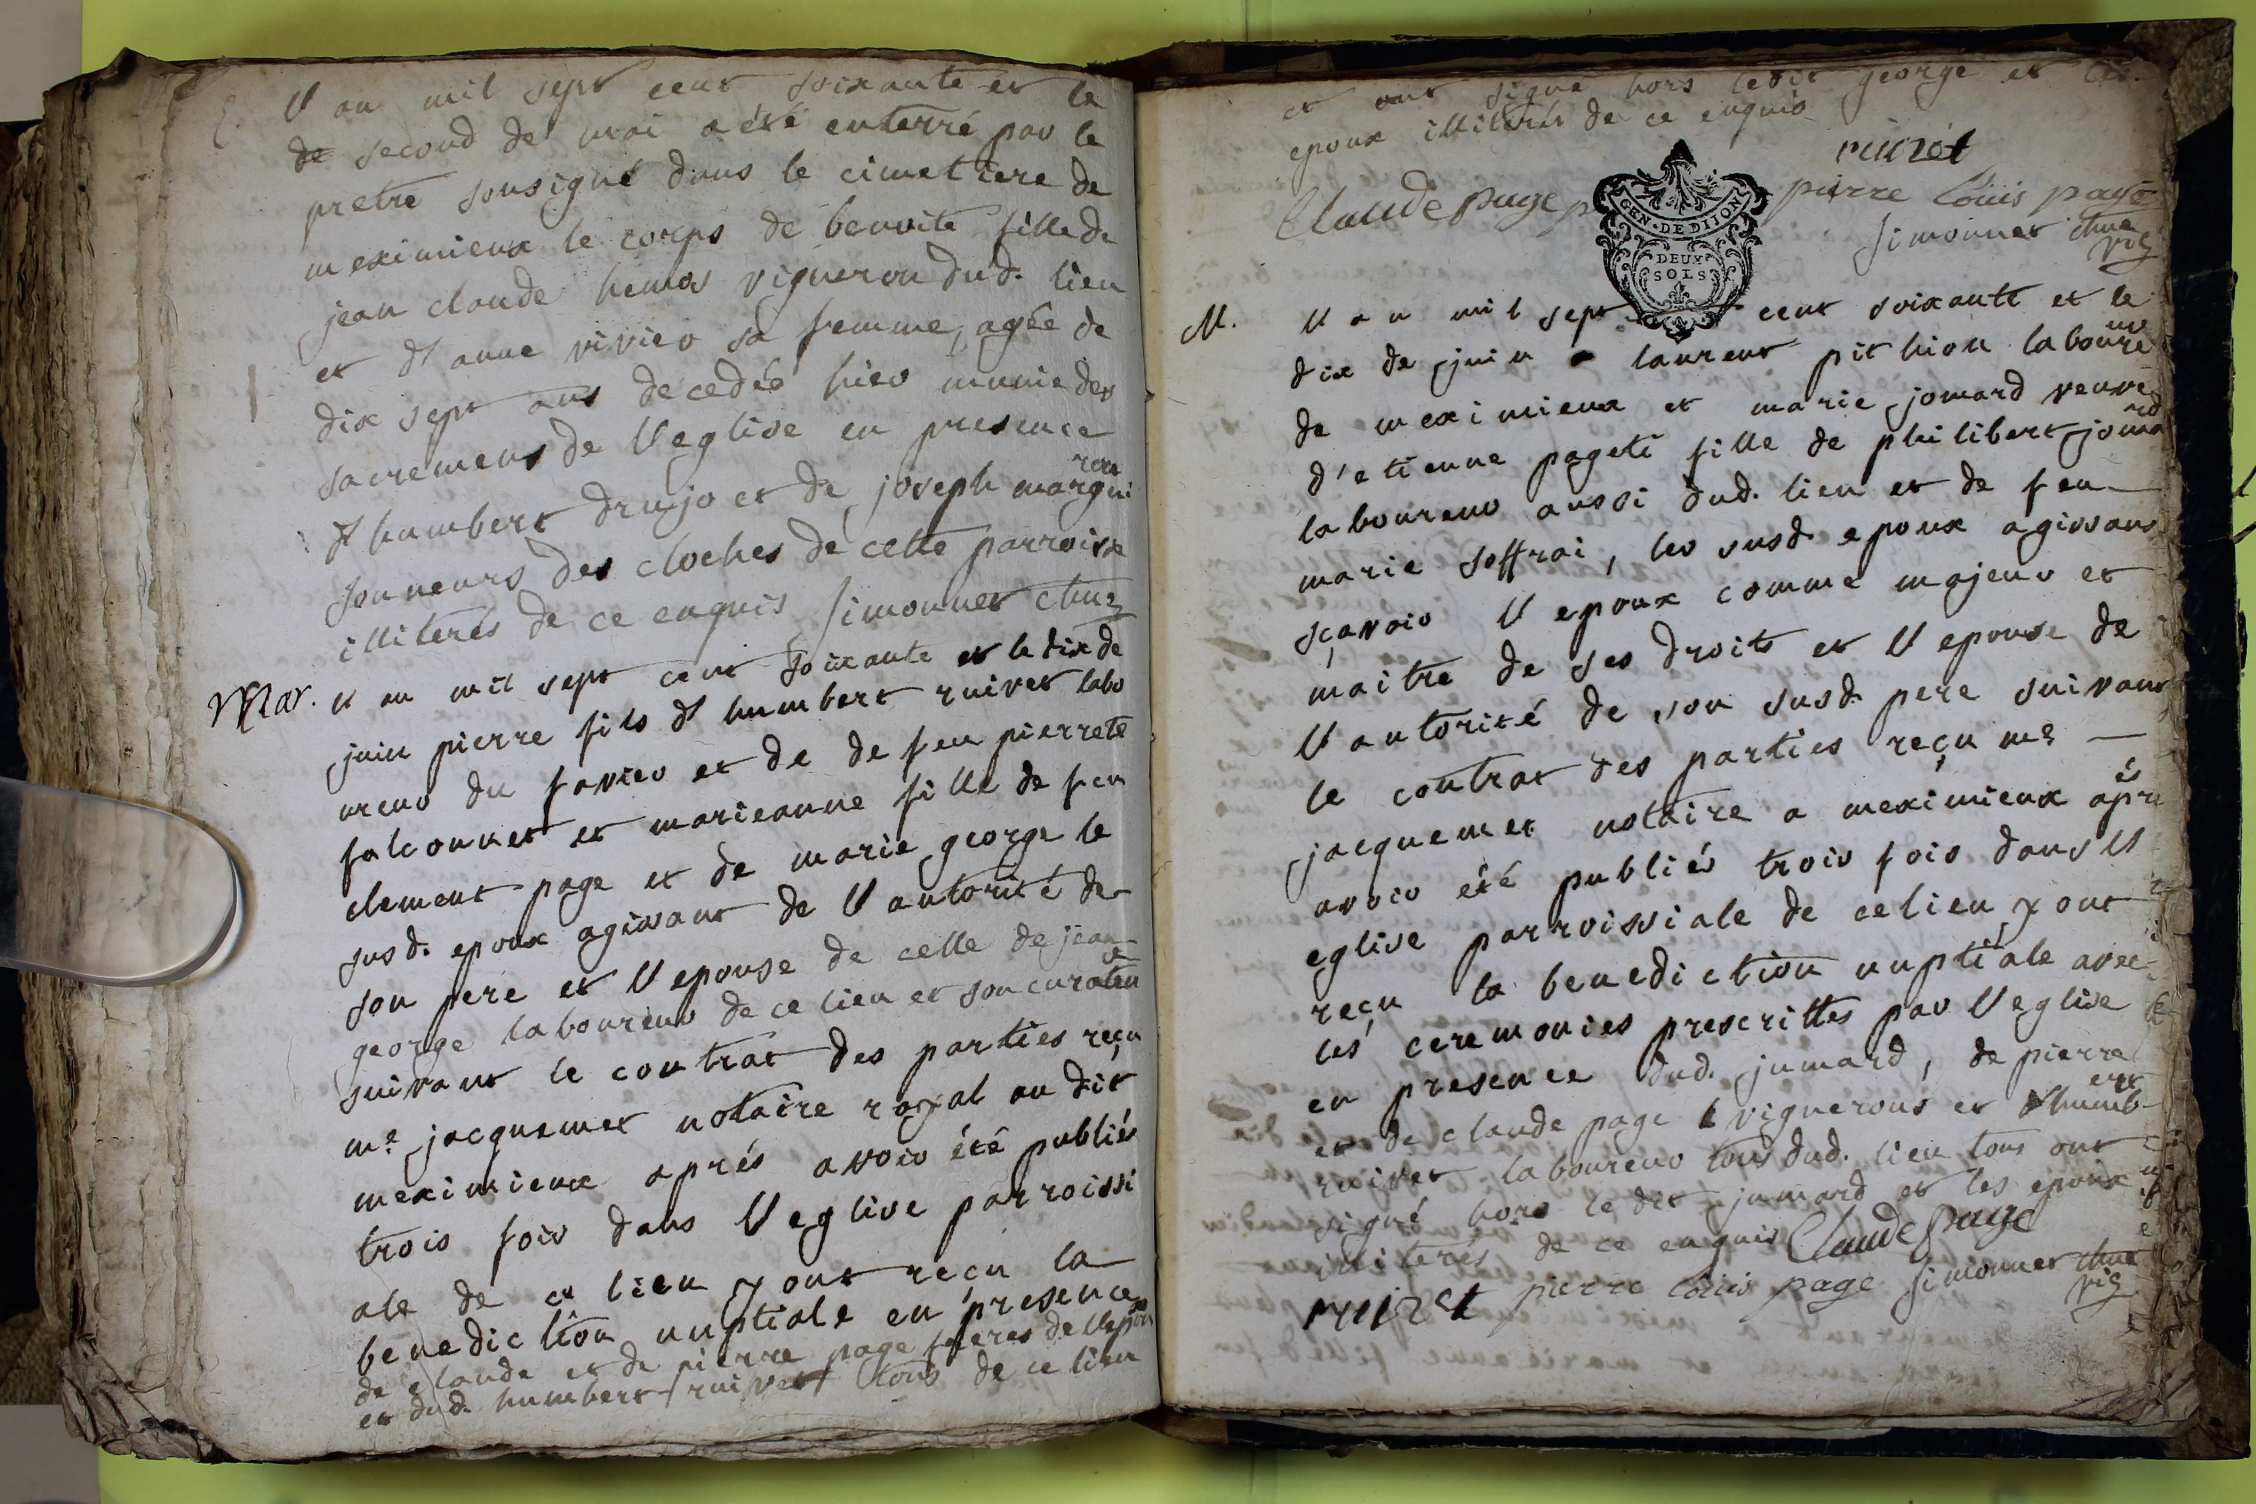 E. l'an mil sept cent soixante et le
de second de mai a été enterré par le
pretre sousigné dans le cimetiere de
meximieux le corps de benoite fille de
jean claude vigneron dud. lien
et d'anne rivier sa femme, agée de
dix sept ans decedée hier munie des
sacremens de l'eglise en presence
d'humbert drujo et de joseph marguiron
sonneurs des cloches de cette parroisse
illiterés de ce enquis Simonnet
Mar. l'an mil sept cent soixante et le dix de
juin pierre fils d'humbert ruivet labo
ureur du favier et de de feu pierrete
falconnet et marieanne fille de feu
clement page et de marie george le
susd. epoux agissant de l'autorité de
son pere et l'epouse de celle de jean
george laboureur de ce lieu et son curateur
suivant le contrat des parties reçu
me. jacquemet notaire royal au dit
meximieux aprés avoir été publiés
trois fois dans l'eglise parroissi
ale de ce lieu y ont reçu la
benediction nuptiale en presence
de claude et de pierre page freres de l'epouse
et dud. humbert ruivet tous de ce lieu
et ont signé hors ledit george et les
epoux illiterés de ce enquis
ruivet
Claude page pierre louis page
GEN. DE DIJON
DEUX
SOLS
Simonnet
M. l'an mil sept cent soixante et le
dix de juin laurent pithion laboureur
de meximieux et marie jomard veuve
d'etienne pageti fille de philibert jomard
laboureur aussi dud. lieu et de feu
marie soffrai, les susd. epoux agissans
sçavoir l'epoux comme majeur et
maitre de ses droits et l'epouse de
l'autorité de son susd. pere suivant
le contrat des parties reçu me
jacquemet notaire a meximieux aprés
avoir été publiés trois fois dans l'
eglise parroissiale de ce lieu, y ont
reçu la benediction nuptiale avec
les ceremonies prescrittes par l'eglise
en presence dud. jumard, de pierre
et de claude page vignerons et d'humbert
ruivet laboureur tous dud. lieu tous ont
signé hors le dit jumard et les epoux
illiterés de ce enquis Claude page
ruivet pierre louis page Simonnet